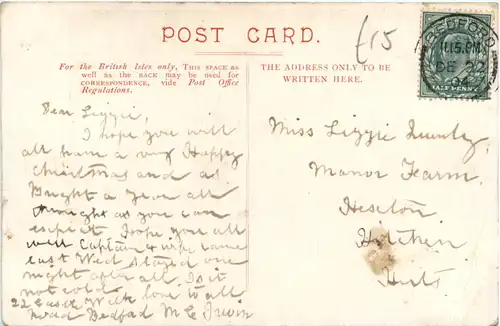 POST CARD.
£15
BEDFORD
11.15.PM
DE 22
04
HALF PENNY
For the British Isles only, THIS SPACE AS
well as the BACK may be used for
CORRESPONDENCE, vide Post Office
Regulations.
THE ADDRESS ONLY TO BE
WRITTEN HERE.
Dear Lizzie,
I hope you will
all have a very Happy
Christmas and as
Bright a year all
through as you can
expect I hope you all
well Captain & wife came
last Wed stayed one
night after all. Is it
not cold love to all
22
Road Bedford M E Irwin
Miss Lizzie
Manor Farm
Hexton
Hitchin
Herts